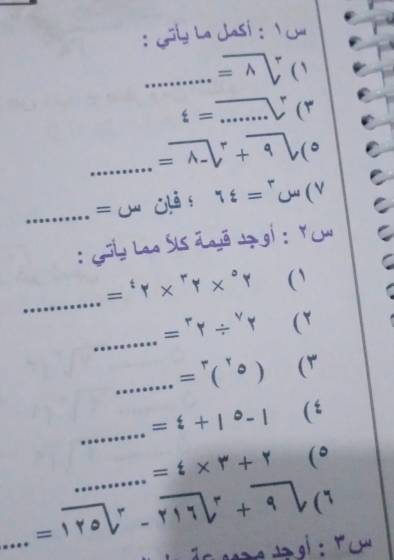 س١ : أكمل ما يأتي :
١) ∛٨ = ..........
٣) ∛........ = ٤
٥) √٩ + ∛-٨ = ..........
٧) س³ = ٦٤ ؛ فإن س = ..........
س٢ : أوجد قيمة كلاً مما يأتي :
١) ٢⁵ × ٢³ × ٢⁴ = ............
٢) ٢⁷ ÷ ٢³ = ..........
٣) (٥²)³ = ..........
٤) |-٥| + ٤ = ..........
٥) ٢ + ٣ × ٤ = ............
٦) √٩ + ∛٢١٦ - ∛١٢٥ = ......
س٣ : أوجد مجموعة